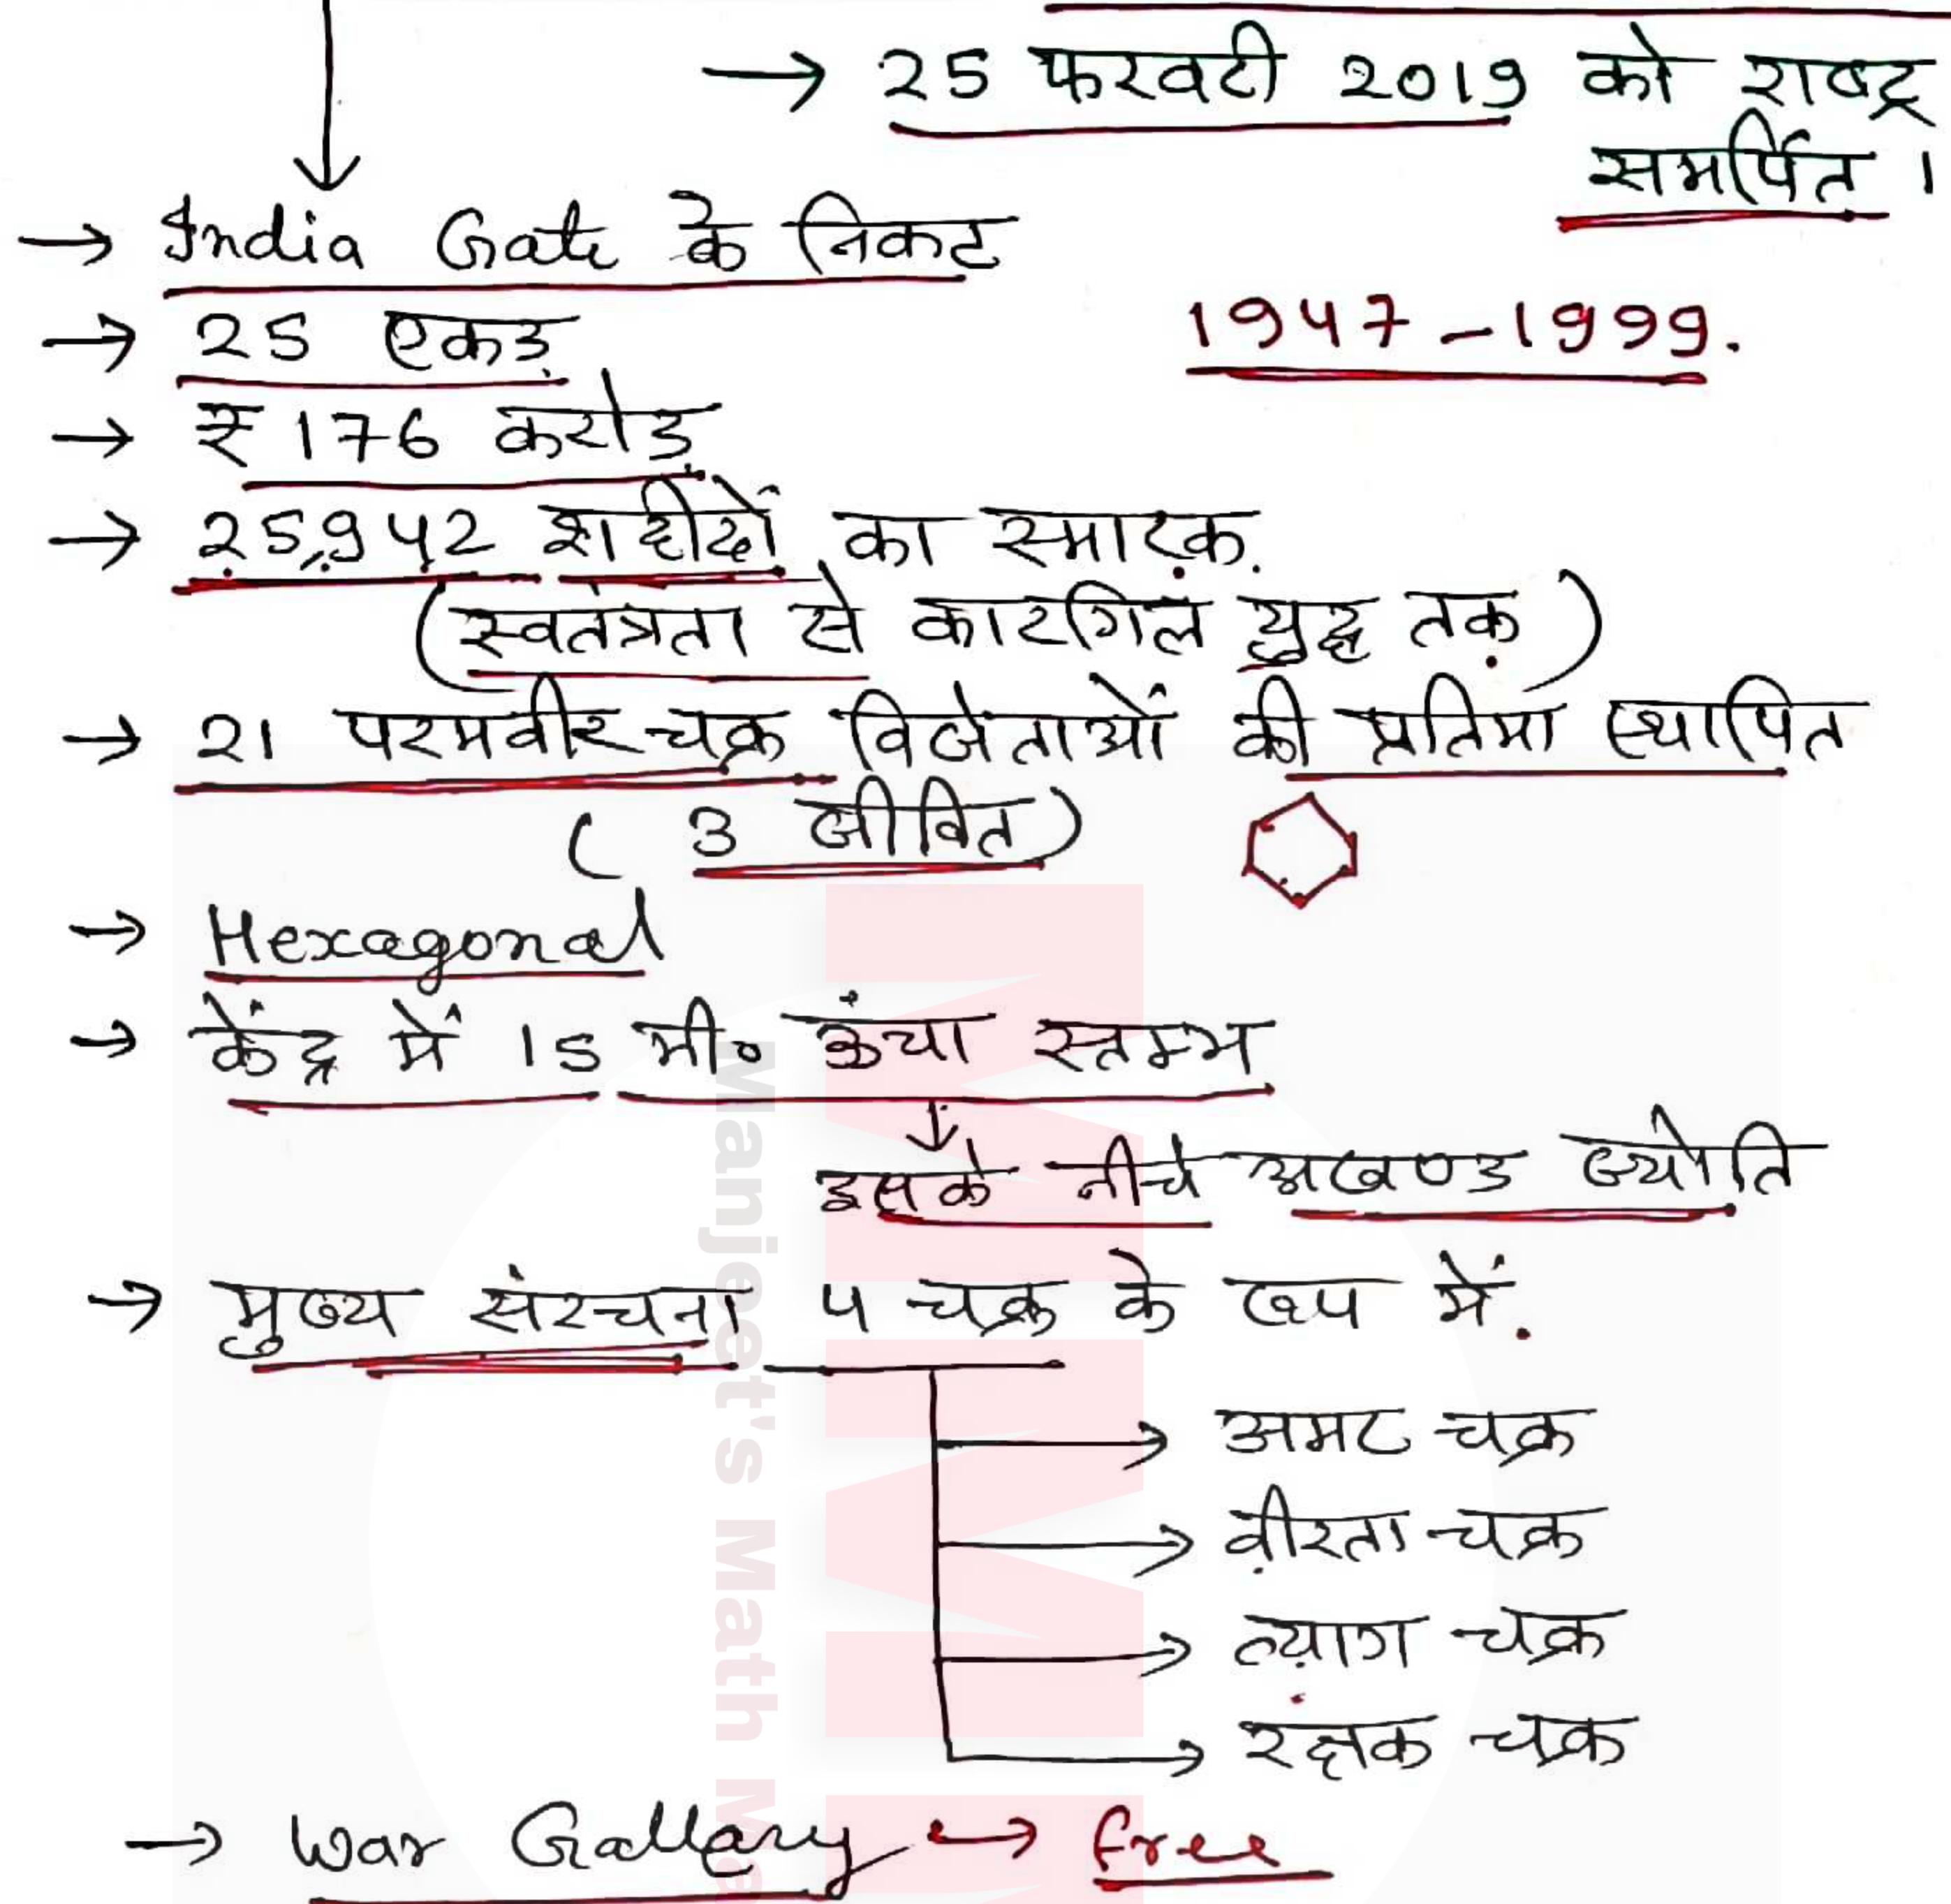 → 25 फरवरी 2019 को राष्ट्र
समर्पित ।
→ India Gate के निकट
→ 25 एकड़
1947-1999.
→ ₹176 करोड़
→ 25,942 शहीदों का स्मारक.
(स्वतंत्रता से कारगिल युद्ध तक)
→ 21 परमवीर चक्र विजेताओं की प्रतिमा स्थापित
(3 जीवित)
→ Hexagonal
→ केंद्र में 15 मी० ऊंचा स्तम्भ
इसके नीचे अखण्ड ज्योति
→ मुख्य संरचना 4 चक्र के रूप में.
→ अमर चक्र
→ वीरता चक्र
→ त्याग चक्र
→ रक्षक चक्र
→ War Gallary → free
Manjeet's Math